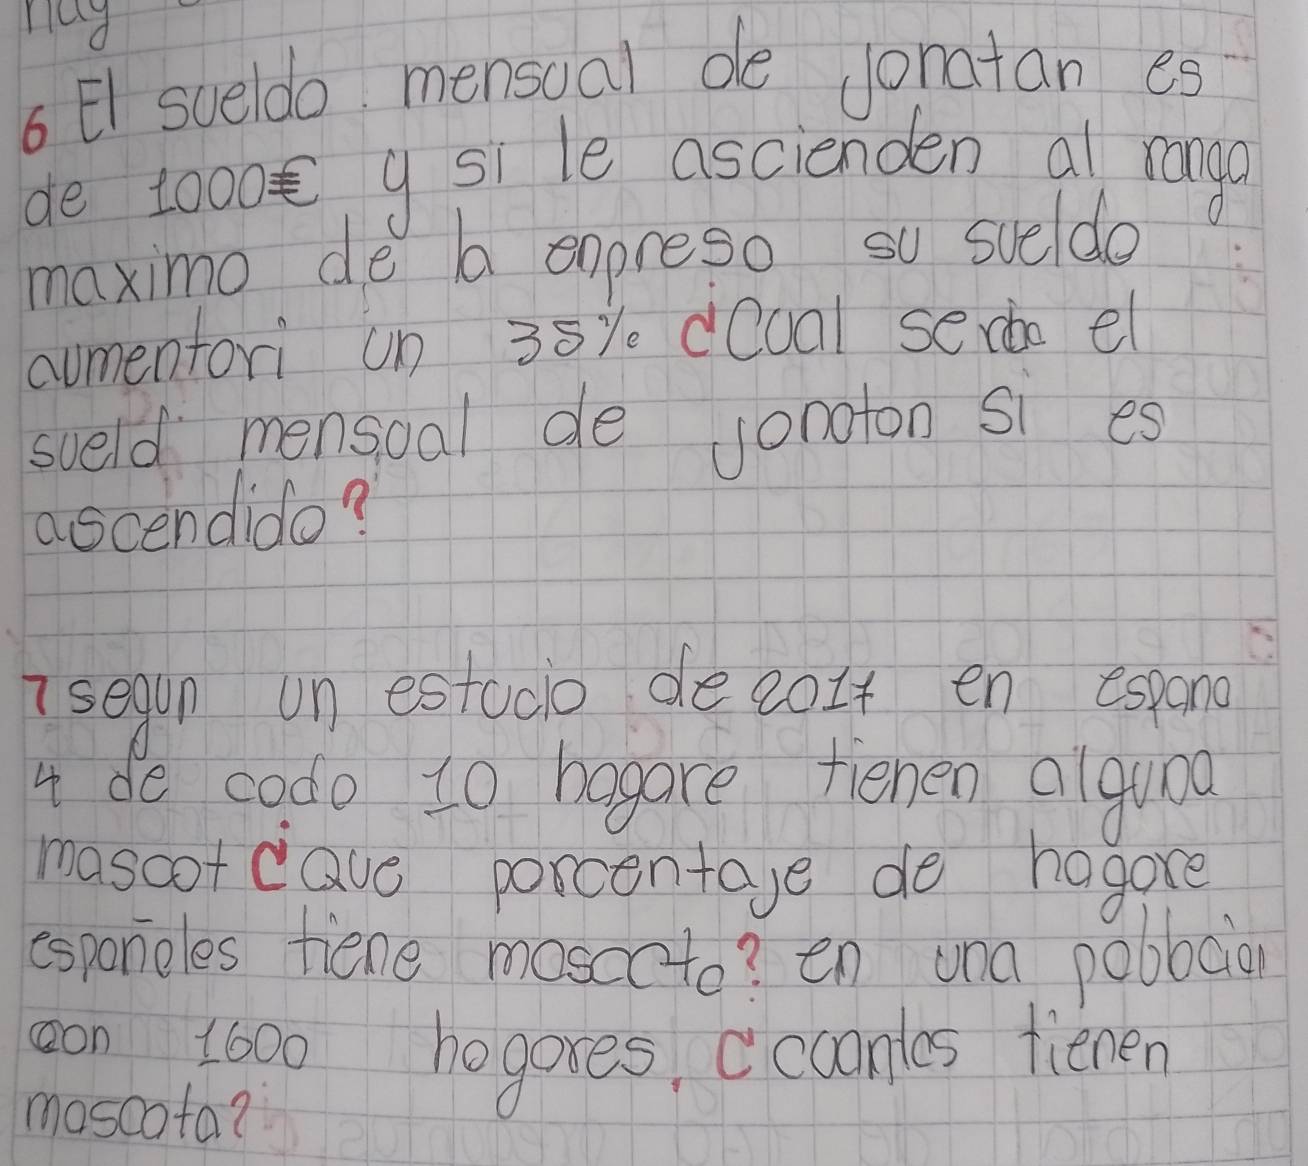 hay
6 El sueldo mensual de Jonatan es
de 1000€ y si le ascienden al ranga
maximo de la enpreso su sueldo
aumentori un 35% ¿Cual sera el
sueld mensual de Jonaton si es
ascendido?
7 segun un estucio de 2017 en espana
4 de codo 10 hogare tienen alguna
mascot ¿Que porcentaje de hogore
espanoles tiene moscoto? en una pobbcion
con 1600 hogores, ¿cuantos tienen
moscota?